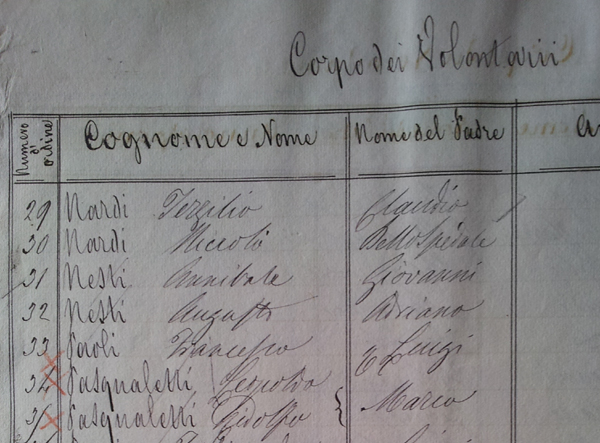 Corpo dei Volontarii
Numero di ordine Cognome e Nome Nome del Padre
29 Nardi Terzilio Claudio
30 Nardi Niccolò Dello Spedale
31 Nesti Annibale Giovanni
32 Nesti Augusto Adriano
33 Paoli Francesco Luigi
34 Pasqualetti Leopoldo
Pasqualetti Ridolfo Marco